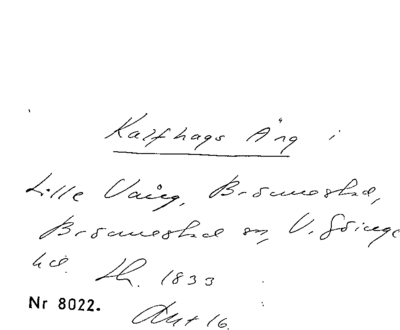 Kalfhags Äng i
Lille Vång, Brönnestad,
Brönnestad sn, V. Göinge
hd. Lh. 1833
Nr 8022.
Akt 16.